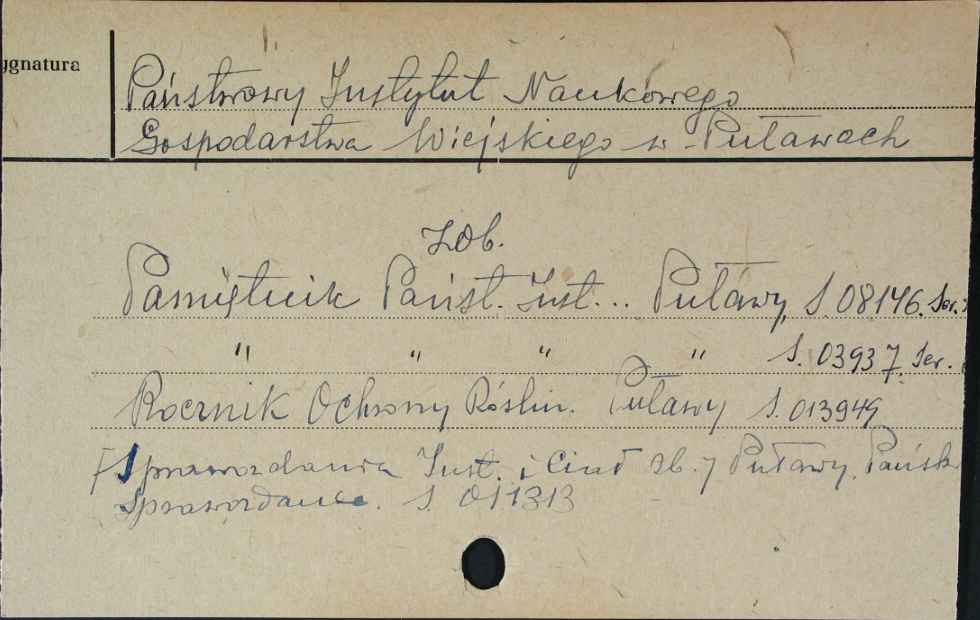 ygnatura
Państwowy Instytut Naukowego
Gospodarstwa Wiejskiego w Puławach
Zob.
Pamiętnik Państ. Inst... Puławy, S. 08146. Ser.
" " " " S. 03937. Ser.
Rocznik Ochrony Roślin. Puławy S. 013949
[Sprawozdania Inst. i Puławy. Państ
Sprawozdanie. S. 011313